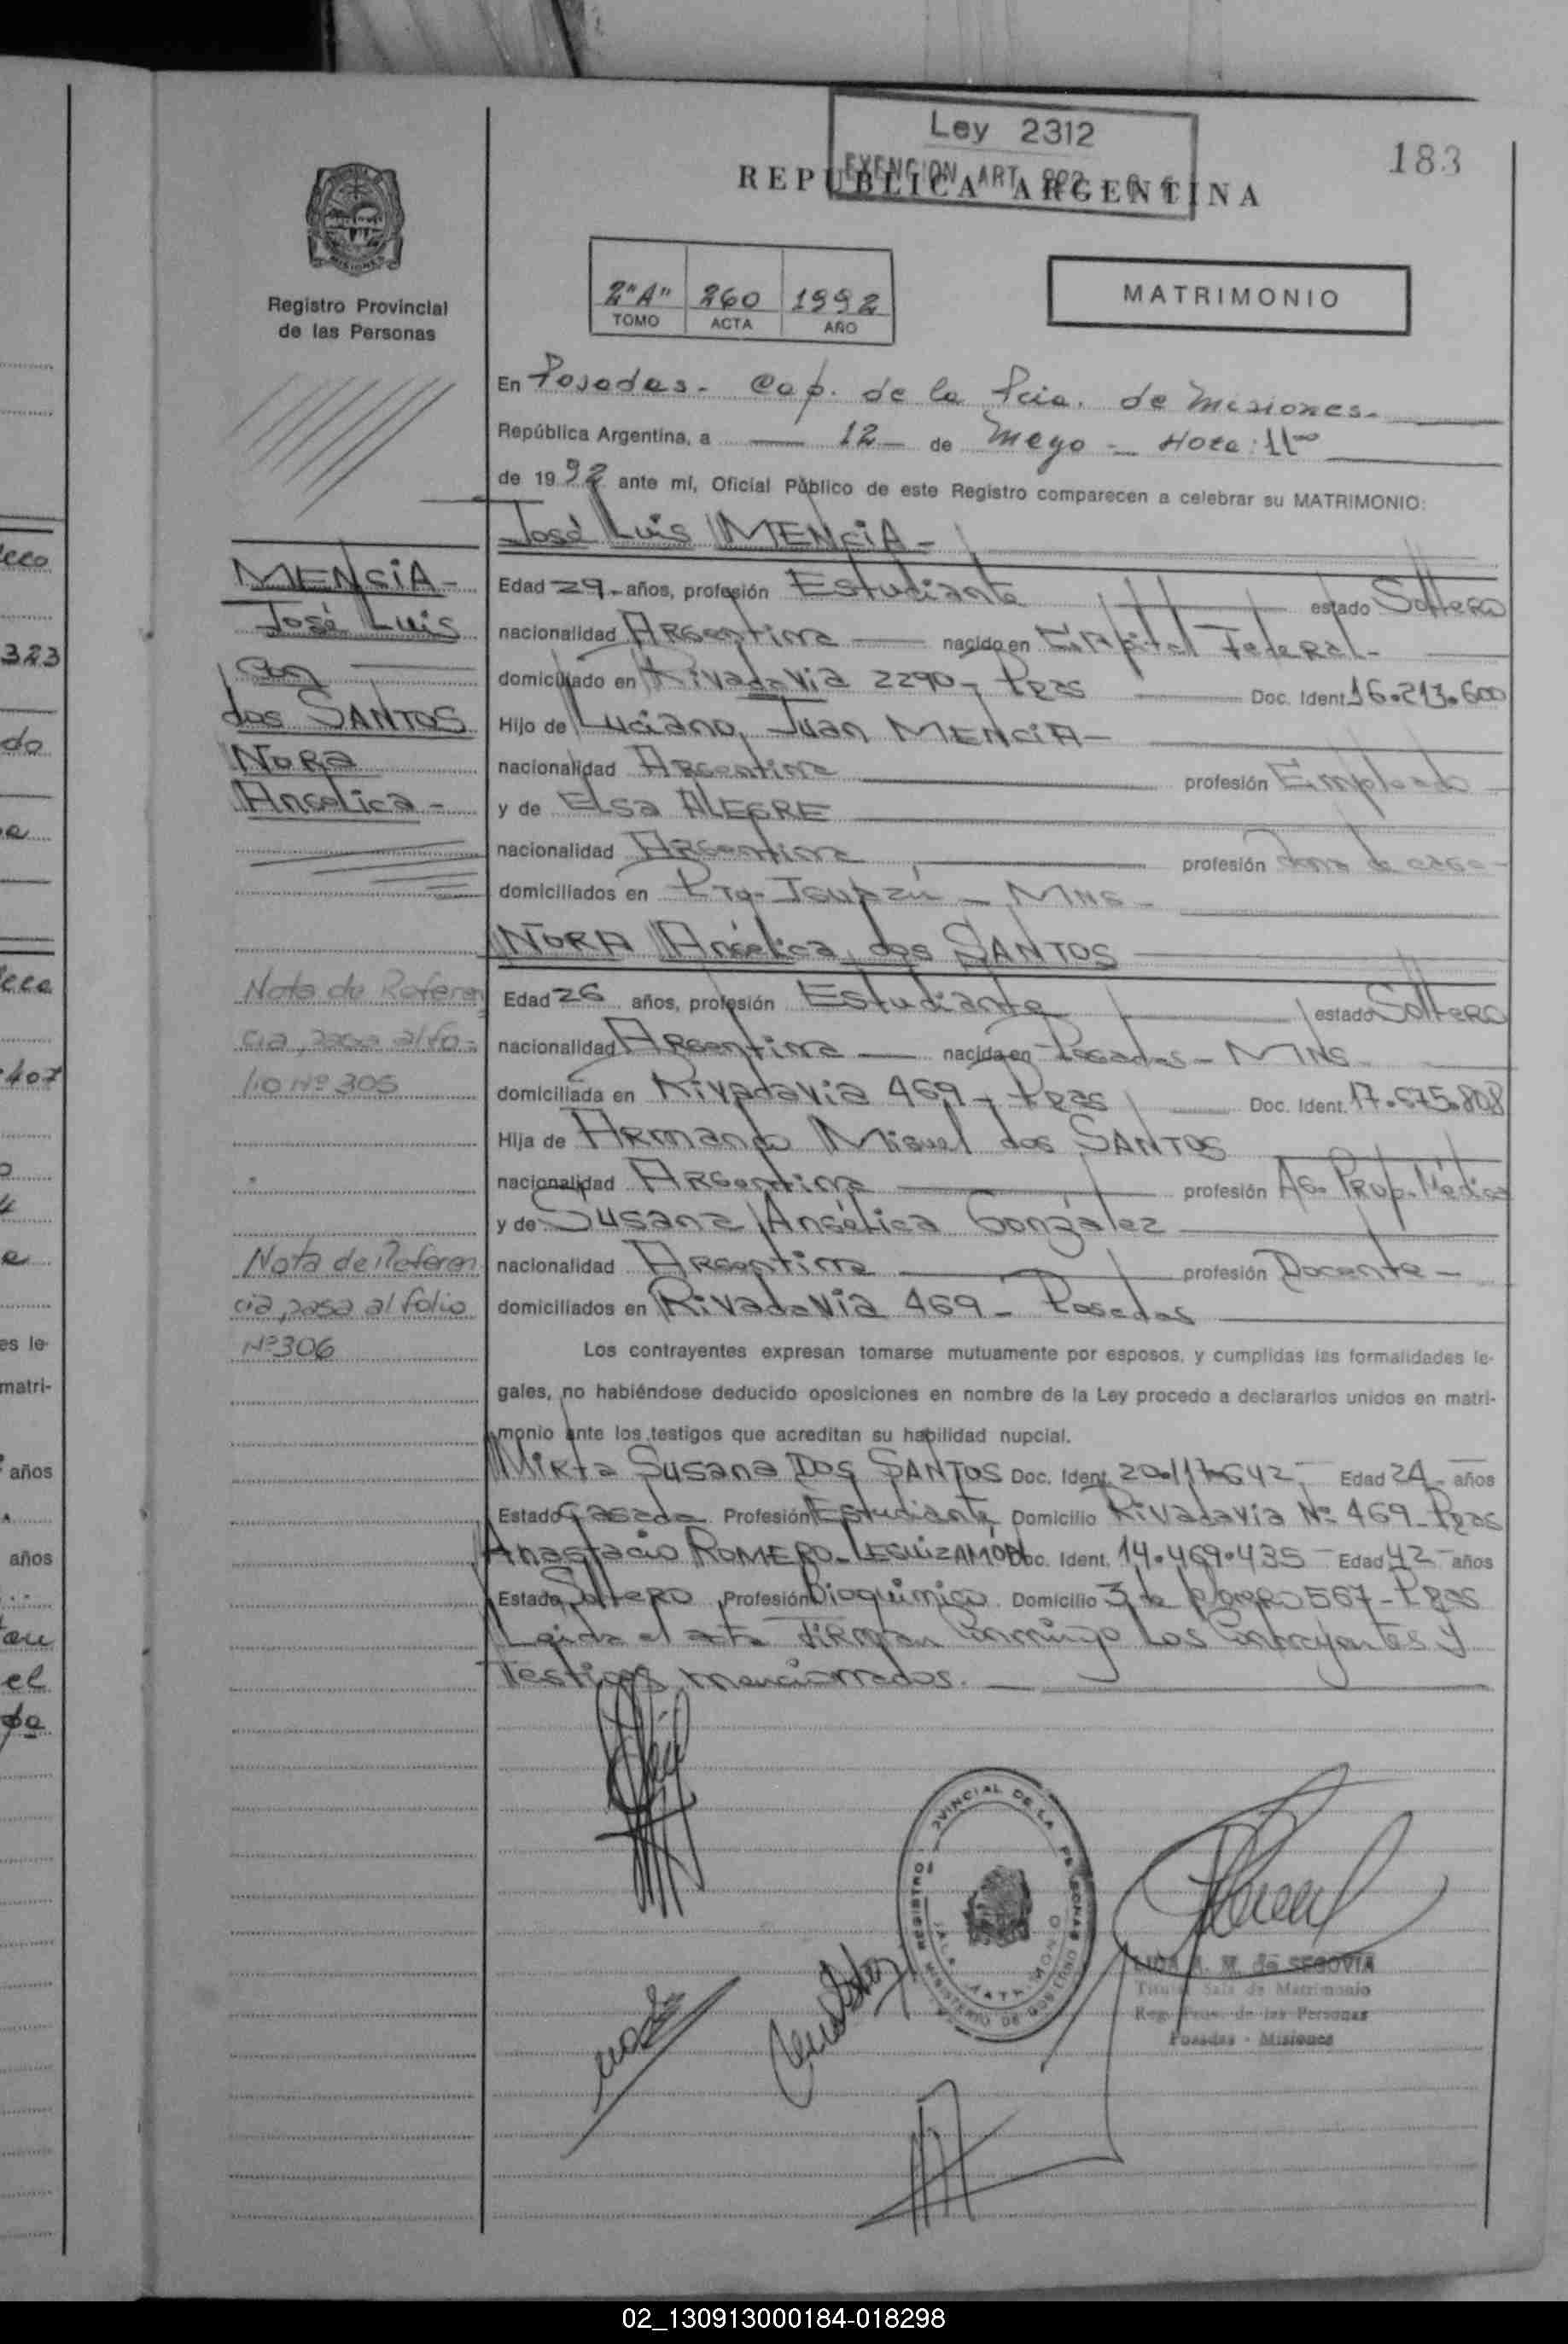 Ley 2312
EXENCION ART.
183
REPUBLICA ARGENTINA
MISIONES
Registro Provincial
de las Personas
2"A" 260 1992
TOMO ACTA AÑO
MATRIMONIO
En Posadas - Cap. de la Pcia. de Misiones.
República Argentina, a 12 de Mayo - Hora: 11⁰⁰
de 1992 ante mí, Oficial Público de este Registro comparecen a celebrar su MATRIMONIO:
José Luis MENCIA -
MENCIA -
José Luis
con
dos SANTOS
NORA
Angelica -
Edad 29 - años, profesión Estudiante estado Soltero
nacionalidad Argentina nacido en Capital Federal -
domiciliado en Rivadavia 2290 - Pdas Doc. Ident. 16.213.600
Hijo de Luciano Juan MENCIA -
nacionalidad Argentina profesión Empleado
y de Elsa ALEGRE
nacionalidad Argentina profesión Ama de casa -
domiciliados en Pto. Iguazú - MNS -
NORA Angélica dos SANTOS
Nota de Referen
cia, pasa al fo-
lio Nº 305
Edad 26 años, profesión Estudiante estado Soltero
nacionalidad Argentina nacida en Posadas - MNS
domiciliada en Rivadavia 469 - Pdas Doc. Ident. 17.675.808
Hija de Armando Miguel dos SANTOS
nacionalidad Argentina profesión Ag. Prop. Médica
y de Susana Angélica González
Nota de Referen
cia, pasa al folio
Nº 306
nacionalidad Argentina profesión Docente -
domiciliados en Rivadavia 469 - Posadas
Los contrayentes expresan tomarse mutuamente por esposos, y cumplidas las formalidades le-
gales, no habiéndose deducido oposiciones en nombre de la Ley procedo a declararlos unidos en matri-
monio ante los testigos que acreditan su habilidad nupcial.
Mirta Susana Dos SANTOS Doc. Ident. 20.117.642 Edad 24 - años
Estado Casada Profesión Estudiante Domicilio Rivadavia Nº 469 - Pdas
Anastacio ROMERO - LEGUIZAMÓN Doc. Ident. 14.469.435 - Edad 42 - años
Estado Soltero Profesión Bioquímico Domicilio 3 de febrero 567 - Pdas
Leida el acta firman conmigo los contrayentes y
testigos mencionados.
REGISTRO PROVINCIAL DE LA PERSONAS
SALA MATRIMONIO
MINISTERIO DE GOBIERNO
LIDA A. M. de SEGOVIA
Titular Sala de Matrimonio
Reg. Prov. de las Personas
Posadas - Misiones
323
do
407
es le-
matri-
años
años
el
02_130913000184-018298